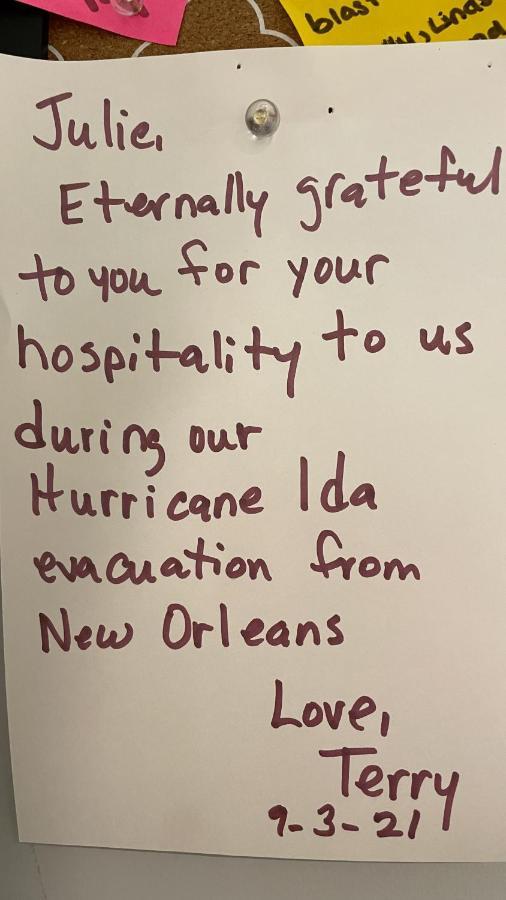 blast
Linds
Julie,
Eternally grateful
to you for your
hospitality to us
during our
Hurricane Ida
evacuation from
New Orleans
Love,
Terry
9-3-21